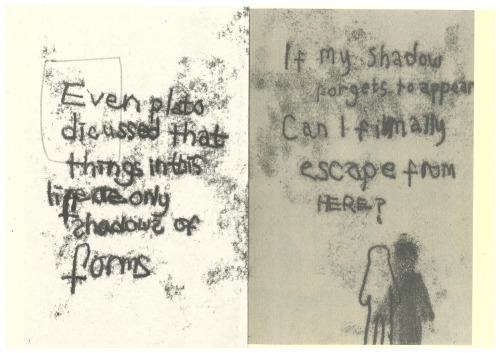 Even plato
dicussed that
things in this
life are only
shadows of
forms
If my shadow
forgets to appear
Can I finally
escape from
HERE?